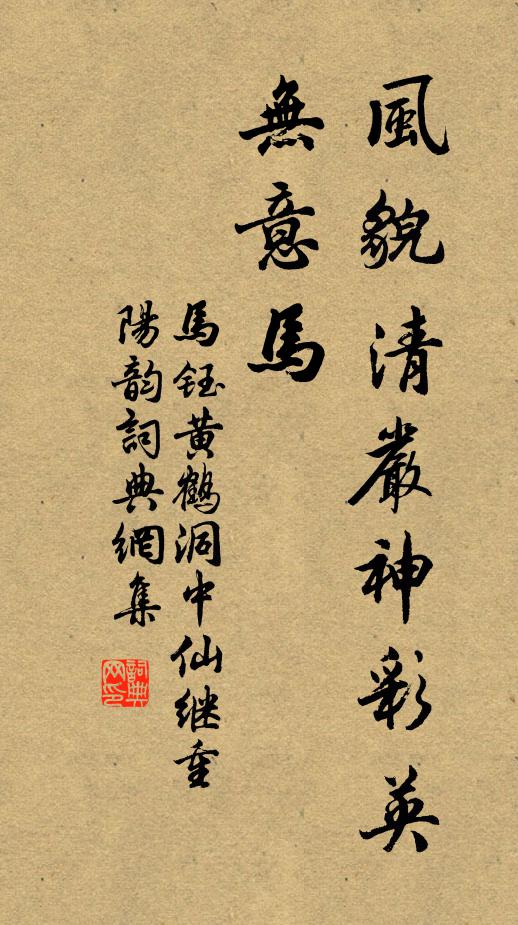 風貌清嚴神彩英
無意馬
馬鈺黄鶴洞中仙继重
陽韵詞典網集
詞典
网印